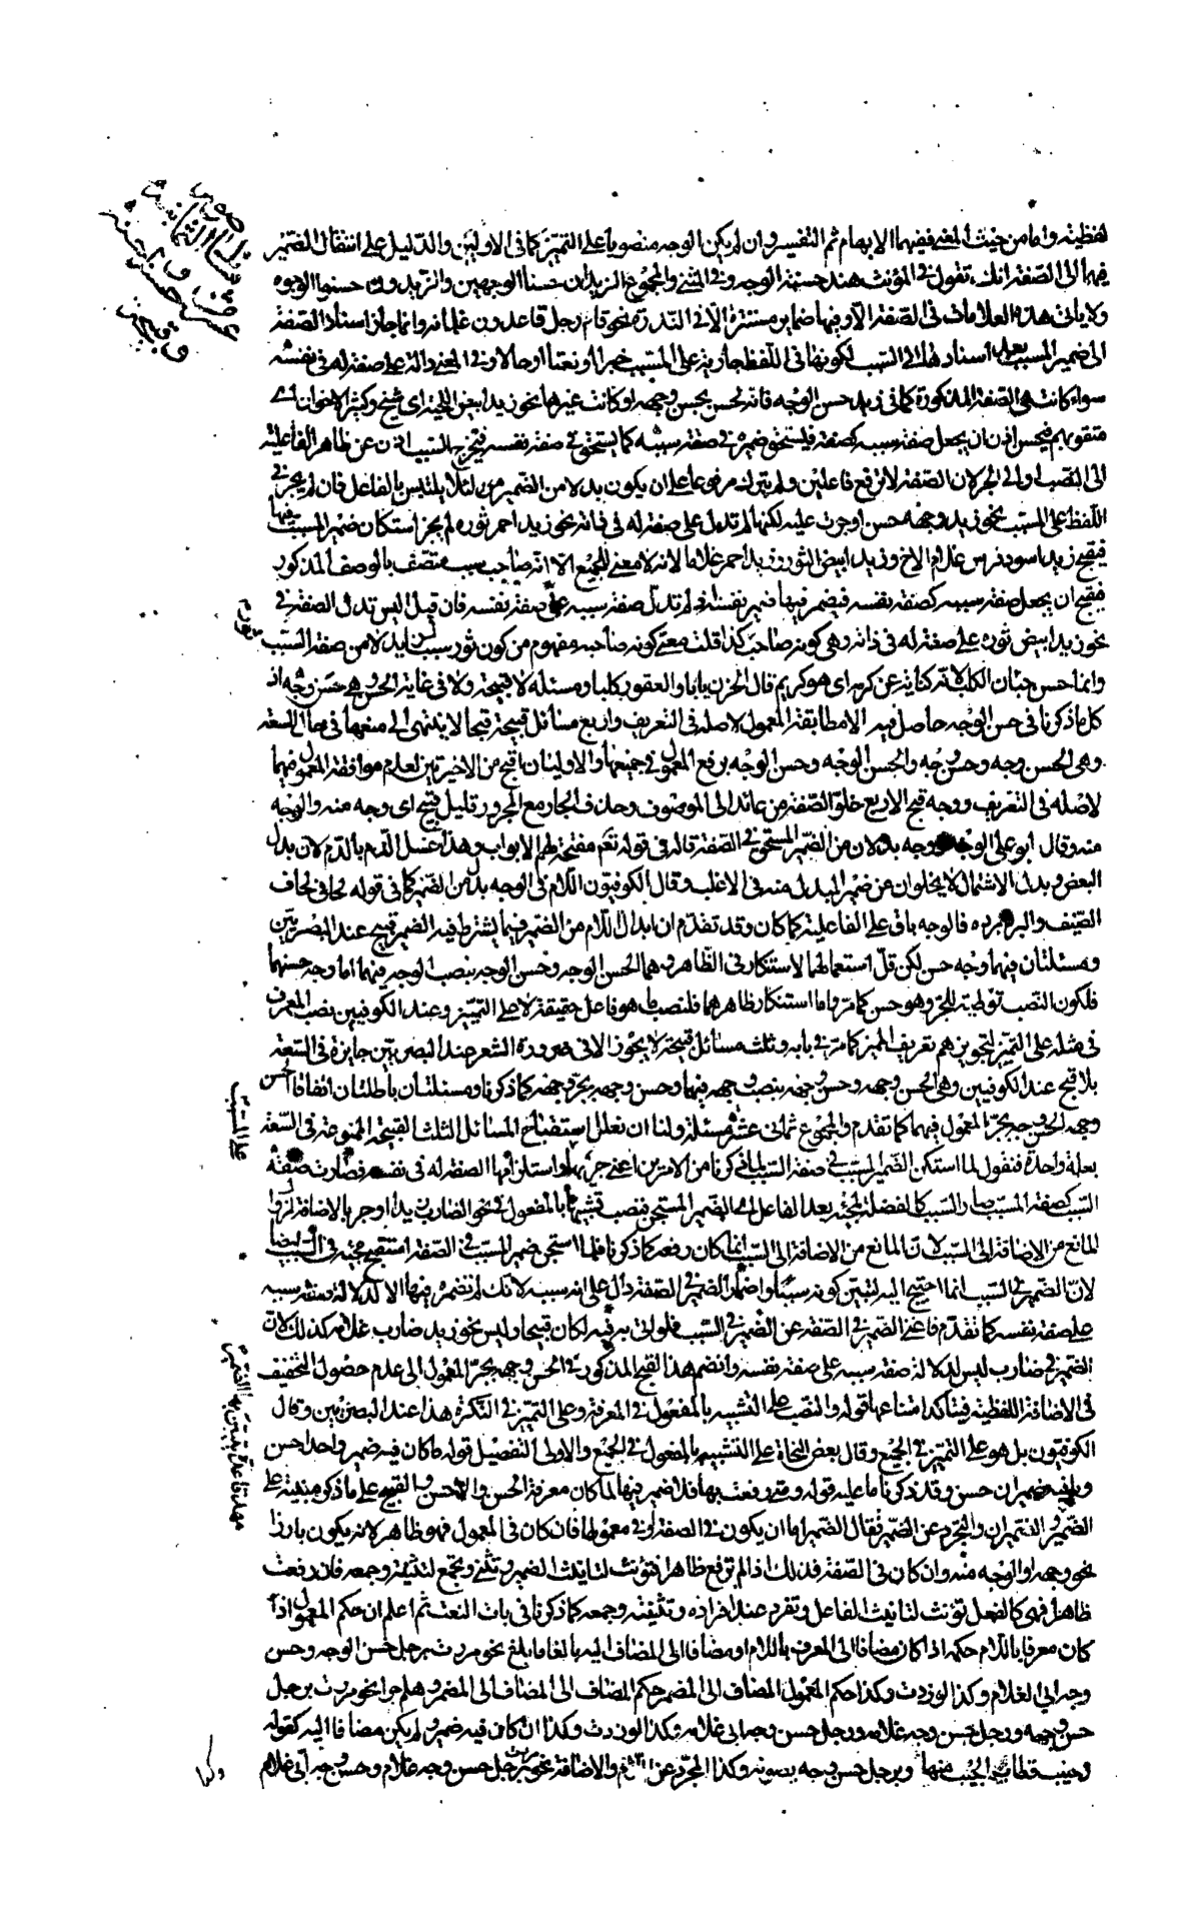 لفظية واما من حيث المعنى ففيهما الابهام ثم التفسير وان لم يكن الوجه منصوبا على التمييز كما فى الاوليين والدليل على انتقال الضمير
فيهما الى الصفة انك تقول فى المؤنث هند حسنة الوجه وفى المثنى والمجموع الزيدان حسنا الوجهين والزيدون حسنوا الوجوه
ولا ياتى هذه العلامات فى الصفة الا وفيها ضماير مستترة الا فى الندرة نحو قام رجل قاعدون غلمانه وانما جاز اسناد الصفة
الى ضمير المسبب بعد اسنادها الى السبب لكونها فى اللفظ جارية على المسبب خبرا او نعتا او حالا وفى المعنى دالة على صفة له فى نفسه
سواء كانت هى الصفة المذكورة كما فى زيد حسن الوجه فانه يحسن بحسن وجهه او كانت غيرها نحو زيد ابيض اللحية اى شيخ وكثير الاخوان اى
متقو بهم فيحسن اذن ان يجعل صفة سببه كصفة فيستكن ضميره فى صفة سببه كما يستكن فى صفة نفسه فيخرج السبب اذن عن ظاهر الفاعلية
الى النصب او الى الجر لان الصفة لا ترفع فاعلين ولم يترك مرفوعا على ان يكون بدلا من الضمير لئلا يلتبس بالفاعل فان لم يجر فى
اللفظ على المسبب نحو زيد وجهه حسن او جرت عليه لكنها لم تدل على صفة له فى ذاته نحو زيد احمر ثوره لم يجز استكان ضمير المسبب فيها
فيقبح زيد اسود فرس غلام الاخ وزيد ابيض الثور وزيد احمر غلاما لانه لا معنى للجميع الا انه صاحب سبب متصف بالوصف المذكور
فيقبح ان يجعل صفة سببه كصفة نفسه فيضمر فيها ضمير نفسه اذ لم تدل صفة سببه على صفة نفسه فان قيل اليس تدل الصفة فى
نحو زيد ابيض ثوره على صفة له فى ذاته وهى كونه صاحب كذا قلت معنى كونه صاحبه مفهوم من كون ثور سببا لزيد لا من صفة السبب
وانما حسن جبان الكلب لانه كناية عن كرم اى هو كريم قال الحزن بابا والعقور كلبا ومسئلة لا قبيحة ولا فى غاية الحسن هى حسن وجه اذ
كل ما ذكرنا فى حسن الوجه حاصل فيه الا مطابقة المعمول لاصله فى التعريف واربع مسائل قبيحة قبحا لا ينتهى الى منعها فى حال السعة
وهى الحسن وجه وحسن وجه والحسن الوجه وحسن الوجه برفع المعمول فى جميعها والاوليان اقبح من الاخيرتين لعدم موافقة المعمول فيهما
لاصله فى التعريف ووجه قبح الاربع خلو الصفة من عائد الى الموصوف وحذف الجار مع المجرور قليل قبيح اى وجه منه والوجه
منه وقال ابو على الوجه ووجه بدلان من الضمير المستكن فى الصفة قال فى قوله تع مفتحة لهم الابواب وهذا غسل الدم بالدم لان بدل
البعض وبدل الاشتمال لا يخلوان من ضمير المبدل منه فى الاغلب وقال الكوفيون اللام فى الوجه بدل من الضمير كما فى قوله لحافى لحاف
الضيف والبرد برده فالوجه باق على الفاعلية كما كان وقد تقدم ان ابدال اللام من الضمير فيما يشترط فيه الضمير قبيح عند البصريين
ومسئلتان فيهما وجه حسن لكن قل استعمالهما لاستنكار فى الظاهر وهما الحسن الوجه وحسن الوجه بنصب الوجه فيهما اما وجه حسنهما
فلكون النصب توطئة للجر وهو حسن كما مر واما استنكار ظاهرهما فلنصب ما هو فاعل حقيقة لا على التمييز وعند الكوفيين نصب المعرف
فى مثله على التمييز لتجويزهم تعريف المميز كما مر فى بابه وثلث مسائل قبيحة لا يجوز الا فى ضرورة الشعر عند البصريين جايزة فى السعة
بلا قبح عند الكوفيين وهى الحسن وجهه وحسن وجهه بنصب وجهه فيهما وحسن وجهه بجر وجهه كما ذكرنا ومسئلتان باطلتان اتفاقا الحسن
وجهه الحسن وجه بجر المعمول فيهما كما تقدم والمجموع ثمانى عشرة مسئلة ولنا ان نعلل استقباح المسائل الثلث القبيحة الممنوعة فى السعة
بعلة واحدة فنقول لما استكن الضمير المسبب فى صفة السبب لما ذكرنا من الامرين اعنى جريها واستلزامها الصفة له فى نفسه فصارت صفة
السبب كصفة المسبب صار السبب كالفضلة لمجيئه بعد الفاعل اى الضمير المستجن فنصب تشبيها بالمفعول فى نحو الضارب زيدا او جر بالاضافة لزوال
المانع من الاضافة الى السبب لان المانع من الاضافة الى السبب انما كان رفعه كما ذكرنا فلما استجن ضمير المسبب فى الصفة استقبح مجيئه فى السبب ايضا
لان الضمير فى السبب انما احتيج اليه لتبيين كونه سببا واضمار الضمير فى الصفة دال على انه سببه لانك لم تضمره فيها الا لدلالة صفة سببه
على صفة نفسه كما تقدم فاغنى الضمير فى الصفة عن الضمير فى السبب فلو اتى به فيه لكان قبيحا وليس نحو زيد ضارب غلامه كذلك لان
الضمير فى ضارب ليس لدلالة صفة سببه على صفة نفسه وانضم هذا القبح المذكور فى الحسن وجهه بجر المعمول الى عدم حصول التخفيف
فى الاضافة اللفظية فتاكد امتناعها قوله والنصب على التشبيه بالمفعول فى المعرفة وعلى التمييز فى النكرة هذا عند البصريين وقال
الكوفيون بل هو على التمييز فى الجميع وقال بعض النحاة على التشبيه بالمفعول فى الجميع والاولى التفصيل قوله ما كان فيه ضمير واحد احسن
وما فيه ضميران حسن وقد ذكرنا ما عليه قوله ومتى رفعت بها فلا ضمير فيها لما كان معرفة الحسن والاحسن والقبيح على ما ذكر مبنية على
الضمير والضميران والتجرد عن الضمير فقال الضمير اما ان يكون فى الصفة او فى معمولها فان كان فى المعمول فهو ظاهر لانه يكون بارزا
نحو وجهه او الوجه منه وان كان فى الصفة فذلك اذا لم ترفع ظاهرا فتؤنث لتانيث الضمير وتثنى وتجمع لتثنيته وجمعه فان رفعت
ظاهرا فهى كالفعل تؤنث لتانيث الفاعل وتفرد عند افراده وتثنيته وجمعه كما ذكرنا فى باب النعت ثم اعلم ان حكم المعمول اذا
كان معرفا باللام حكمه اذا كان مضافا الى المعرف باللام او مضافا الى المضاف اليه بالغا ما بلغ نحو مررت برجل حسن الوجه وحسن
وجه ابى الغلام وكذا لو زدت وكذا حكم المعمول المضاف الى المضمر حكم المضاف الى المضاف الى المضمر وهلم جرا نحو مررت برجل
حسن وجهه ورجل حسن وجه غلامه ورجل حسن وجه ابى غلامه وكذا لو زدت وكذا ان كان فيه ضمير ولم يكن مضافا اليه كقوله
رحيب قطاب الجيب منها وبرجل حسن وجه يصونه وكذا المجرد عن اللام والاضافة نحو مررت برجل حسن وجه غلام وحسن وجه ابى غلام
على المسبب
وكذا